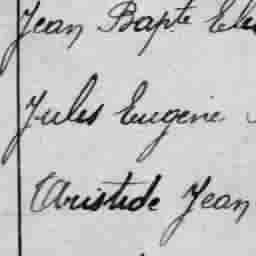 Jean Bapte
Jules Eugène
Aristide Jean